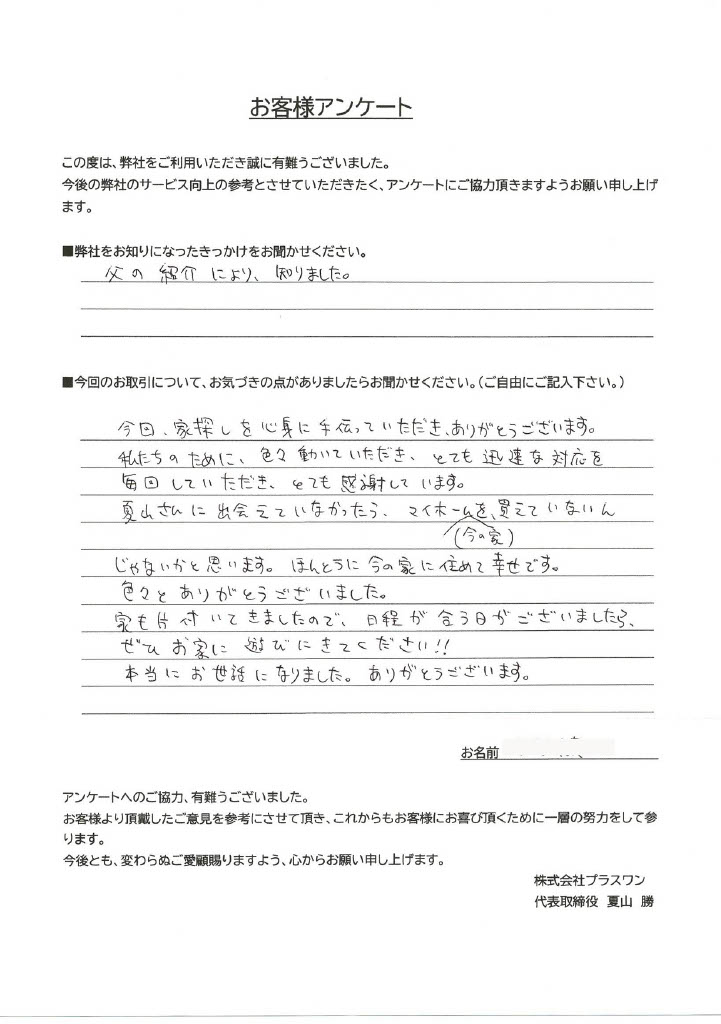 お客様アンケート
この度は、弊社をご利用いただき誠に有難うございました。
今後の弊社のサービス向上の参考とさせていただきたく、アンケートにご協力頂きますようお願い申し上げ
ます。
■弊社をお知りになったきっかけをお聞かせください。
父の紹介により、知りました。
■今回のお取引について、お気づきの点がありましたらお聞かせください。(ご自由にご記入下さい。)
今回、家探しを心身に手伝っていただき、ありがとうございます。
私たちのために、色々動いていただき、とても迅速な対応を
毎回していただき、とても感謝しています。
夏山さんに出会えていなかったら、マイホームを、買えていないん
(今の家)
じゃないかと思います。ほんとうに今の家に住めて幸せです。
色々とありがとうございました。
家も片付いてきましたので、日程が合う日がございましたら、
ぜひお家に遊びにきてください!!
本当にお世話になりました。ありがとうございます。
お名前
アンケートへのご協力、有難うございました。
お客様より頂戴したご意見を参考にさせて頂き、これからもお客様にお喜び頂くために一層の努力をして参
ります。
今後とも、変わらぬご愛顧賜りますよう、心からお願い申し上げます。
株式会社プラスワン
代表取締役 夏山 勝